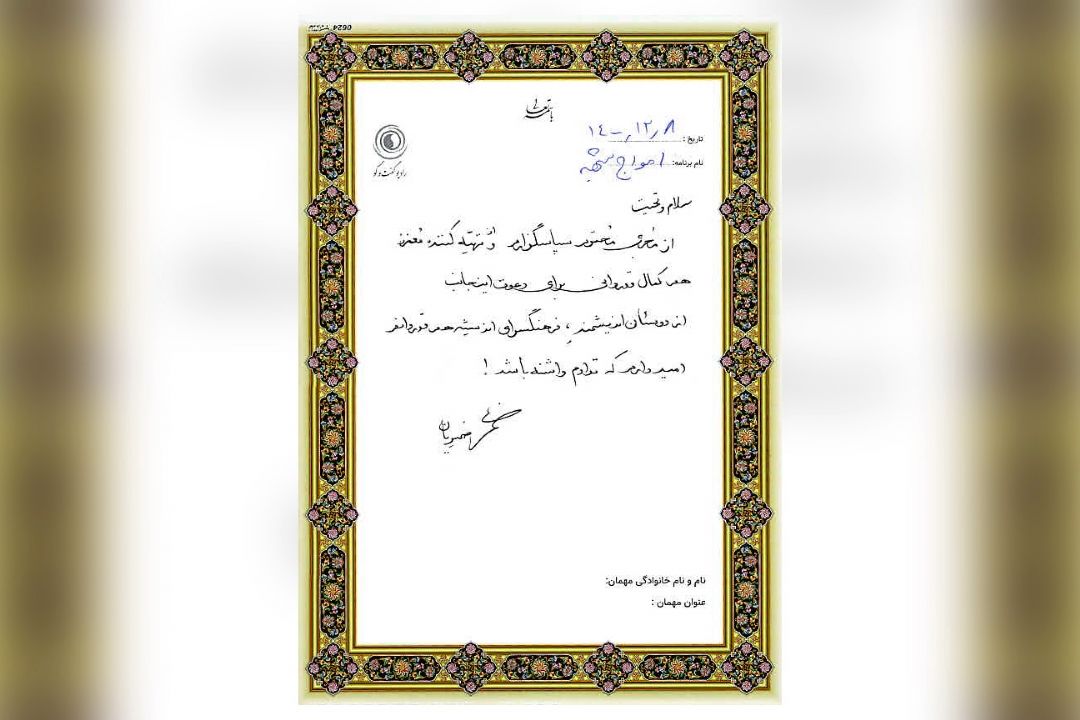 باسمه تعالی
تاریخ: ۱۴۰۰/۱۲/۸
نام برنامه: امواج
رادیو گفت و گو
سلام و تحیت
از مجری محترم سپاسگزارم و تهیه کننده معزز
هم کمال قدردانی برای دعوت اینجانب
از دوستان اندیشمند، فرهنگسرای اندیشه هم قدردانم
امیدوارم که تداوم داشته باشد!
نام و نام خانوادگی مهمان:
عنوان مهمان :